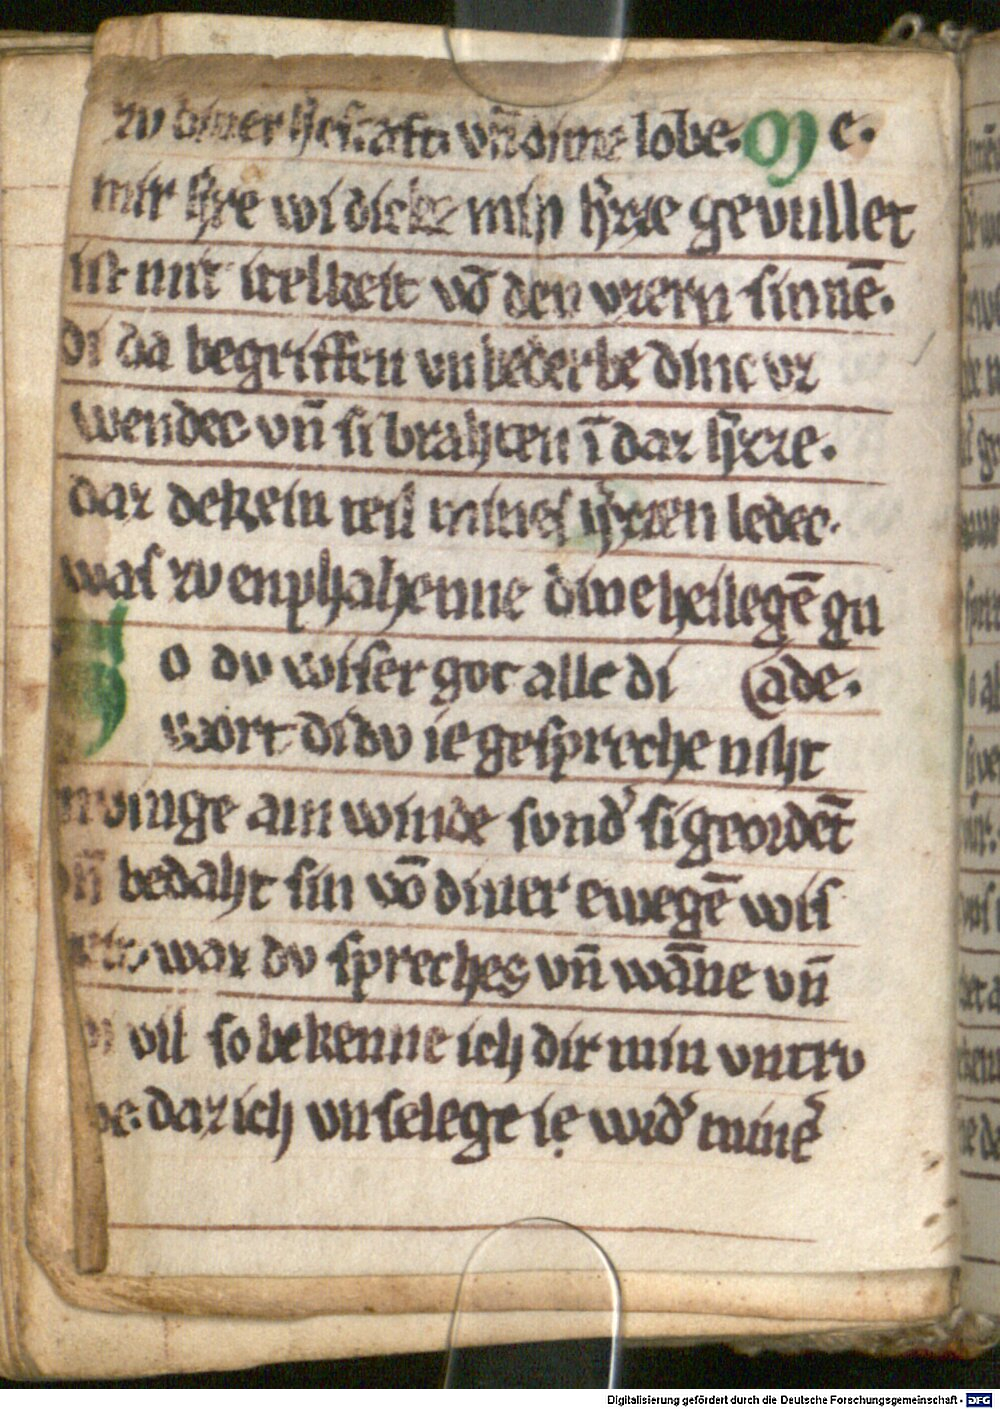 zv diner vñ dine lobe. O e.
mir h̄re wi dicke min h̄rze gevullet
ist mit itelkeit vō den vzern sinnē.
di da begriffen vnbederbe dinc vz
wendec vñ si brahten ī daz h̄rze.
daz dekein teil mines h̄rzen ledec.
was zv enphahenne dine heilegē gn
o dv wiser got alle di ade.
wort di dv ie gespreche niht
vinge ain winde sond̾ si geordēt
vñ bedaht sin vō diner ewegē wis
waz dv spreches vñ wāne vñ
vil so bekenne ich dir min vntrv
we. daz ich vnselege ie wid̾ minē
Digitalisierung gefördert durch die Deutsche Forschungsgemeinschaft - DFG